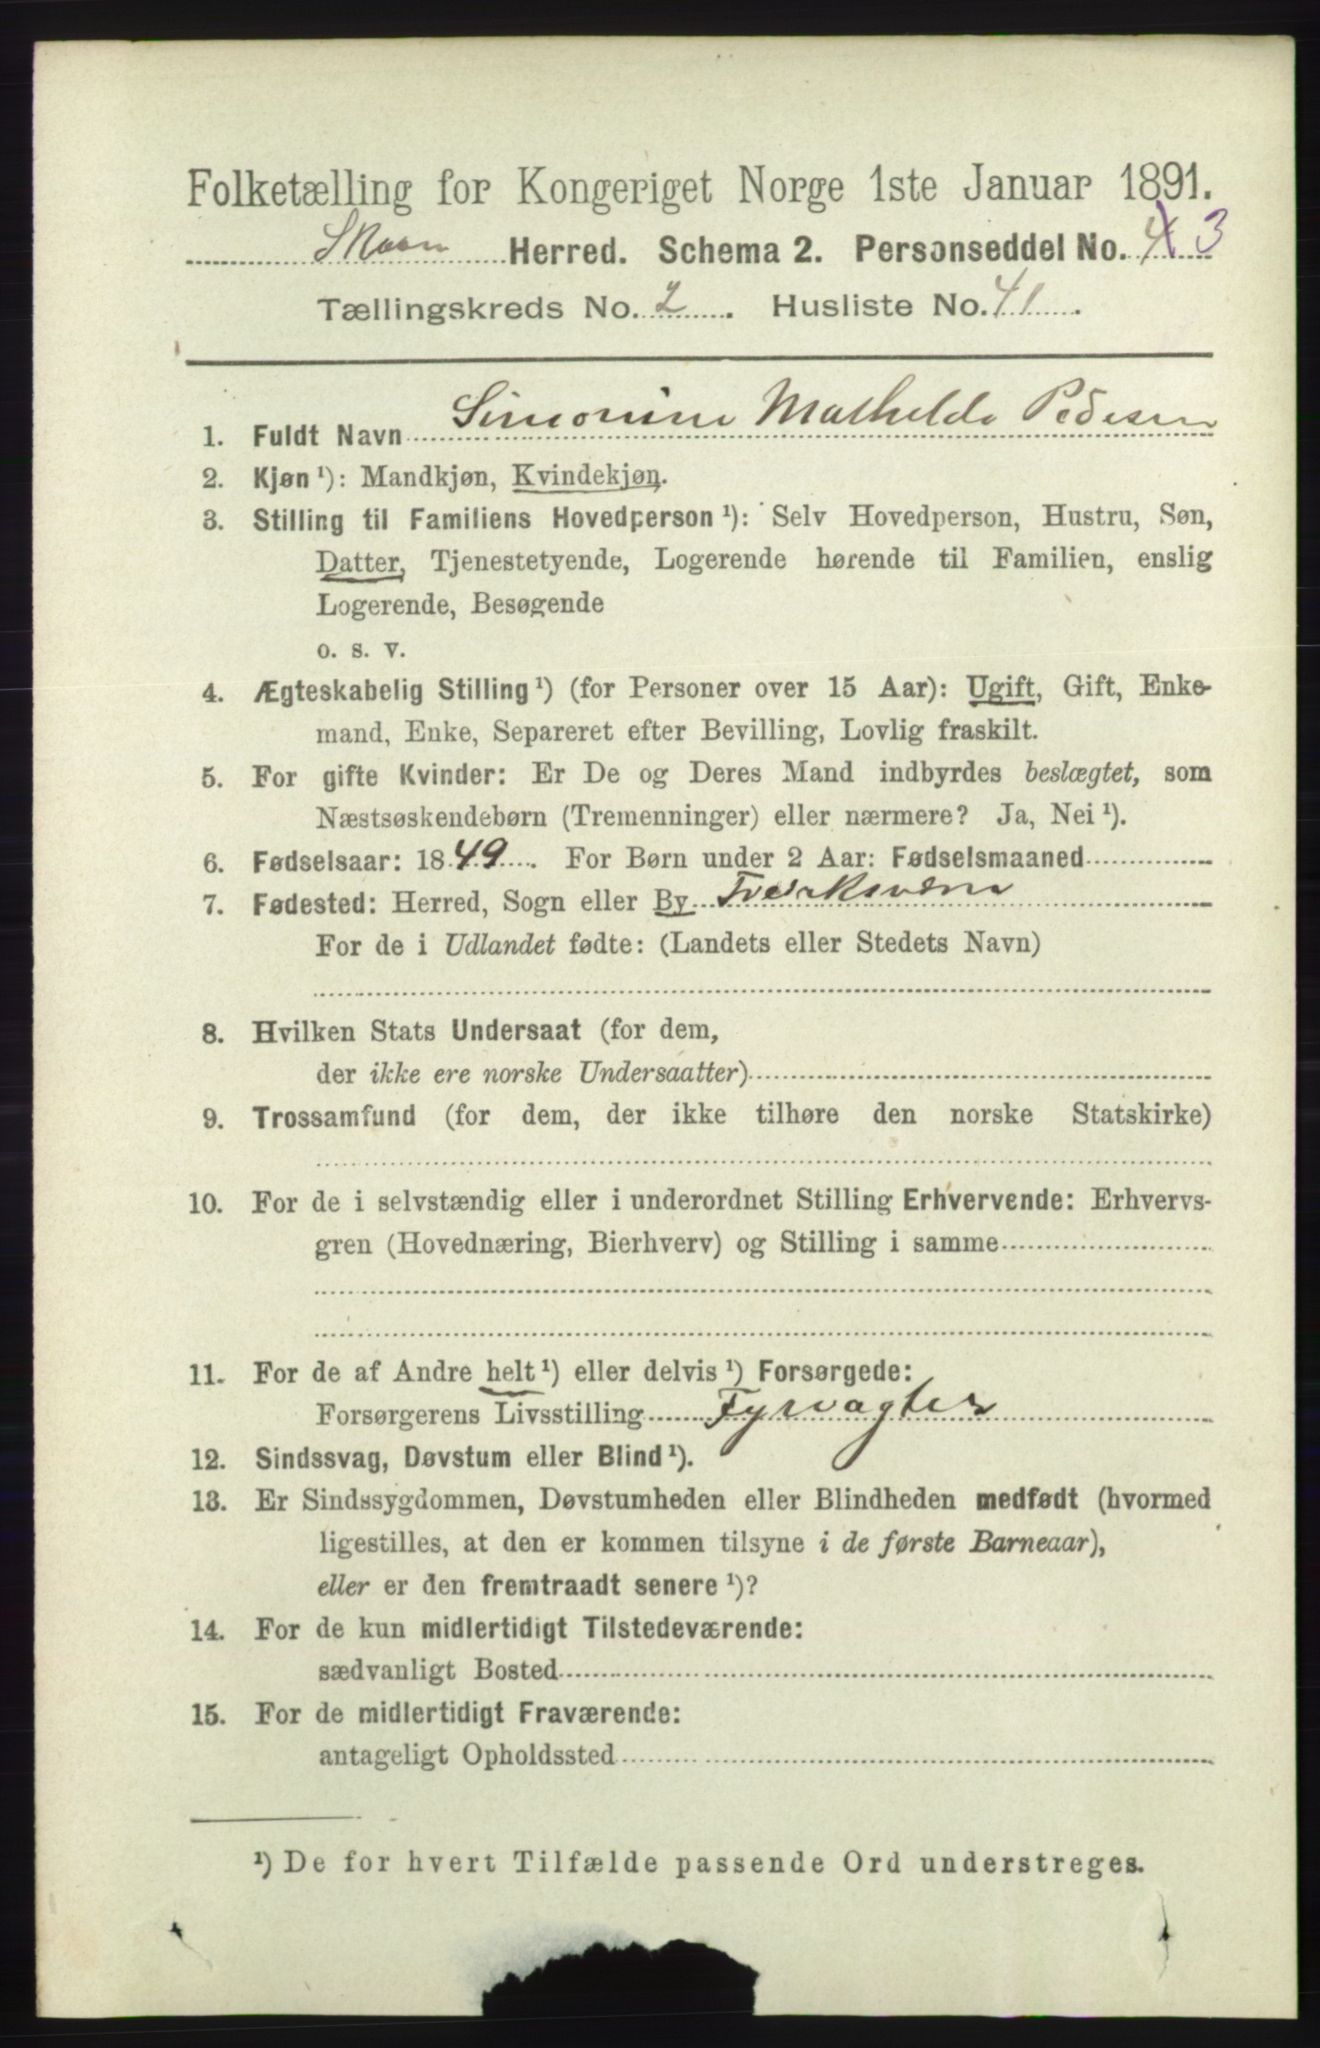 Folketælling for Kongeriget Norge 1ste Januar 1891.
Skaan Herred. Schema 2. Personseddel No. 4 3
Tællingskreds No. 2. Husliste No. 41.
1. Fuldt Navn Simonine Mathilde Pedersen
2. Kjøn¹): Mandkjøn, Kvindekjøn.
3. Stilling til Familiens Hovedperson¹): Selv Hovedperson, Hustru, Søn,
Datter, Tjenestetyende, Logerende hørende til Familien, enslig
Logerende, Besøgende
o. s. v.
4. Ægteskabelig Stilling¹) (for Personer over 15 Aar): Ugift, Gift, Enke-
mand, Enke, Separeret efter Bevilling, Lovlig fraskilt.
5. For gifte Kvinder: Er De og Deres Mand indbyrdes beslægtet, som
Næstsøskendebørn (Tremenninger) eller nærmere? Ja, Nei¹).
6. Fødselsaar: 1849. For Børn under 2 Aar: Fødselsmaaned
7. Fødested: Herred, Sogn eller By Fredriksværn
For de i Udlandet fødte: (Landets eller Stedets Navn)
8. Hvilken Stats Undersaat (for dem,
der ikke ere norske Undersaatter)
9. Trossamfund (for dem, der ikke tilhøre den norske Statskirke)
10. For de i selvstændig eller i underordnet Stilling Erhvervende: Erhvervs-
gren (Hovednæring, Bierhverv) og Stilling i samme
11. For de af Andre helt¹) eller delvis¹) Forsørgede:
Forsørgerens Livsstilling Fyrvagter
12. Sindssvag, Døvstum eller Blind¹).
13. Er Sindssygdommen, Døvstumheden eller Blindheden medfødt (hvormed
ligestilles, at den er kommen tilsyne i de første Barneaar),
eller er den fremtraadt senere¹)?
14. For de kun midlertidigt Tilstedeværende:
sædvanligt Bosted
15. For de midlertidigt Fraværende:
antageligt Opholdssted
¹) De for hvert Tilfælde passende Ord understreges.